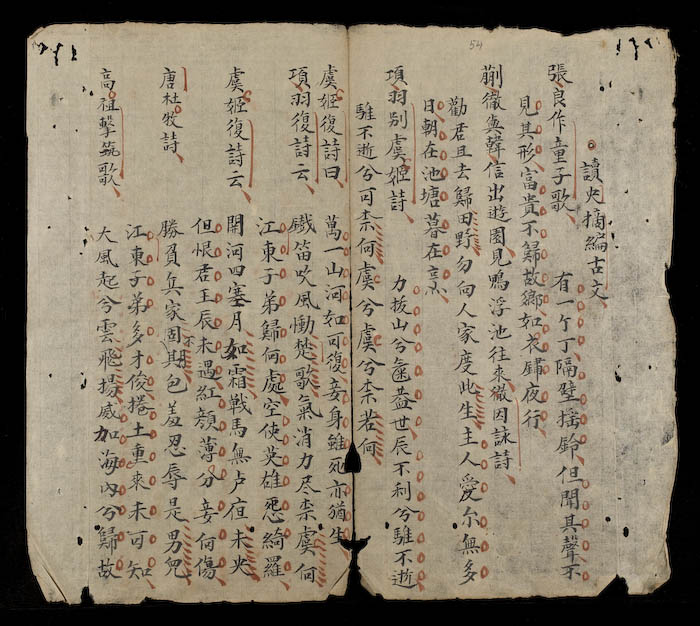 54
讀史摘編古文
張良作童子歌 有一个丁隔壁摇鈴但聞其聲不
見其形富貴不歸故鄉如衣錦夜行
蒯徹與韓信出遊園見鴨浮池往來徹因詠詩
勸君且去歸田野勿向人家度此生主人愛尔無多
日朝在池塘暮在烹
項羽别虞姬詩 力拔山兮氣蓋世辰不利兮騅不逝
騅不逝兮可柰何虞兮虞兮柰若何
虞姬復詩曰 萬一山河如可復妾身雖死亦猶生
項羽復詩云 鐵笛吹風慟楚歌氣消力尽柰虞何
江東子弟歸何處空使英雄怨綺羅
虞姬復詩云 関河四塞月如霜戰馬無声夜未央
但恨君王辰未遇紅顔薄分妾何傷
唐杜牧詩 勝負兵家不固期包羞忍辱是男兒
江東子弟多才俊捲土重來未可知
高祖擊筑歌 大風起兮雲飛揚威加海内兮歸故